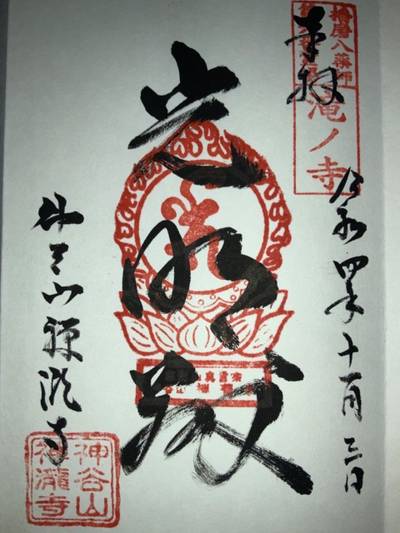 播磨八薬師
滝ノ寺
奉拝
令和四年十一月三日
光明殿
神谷山禅瀧寺
神谷山
禅瀧寺